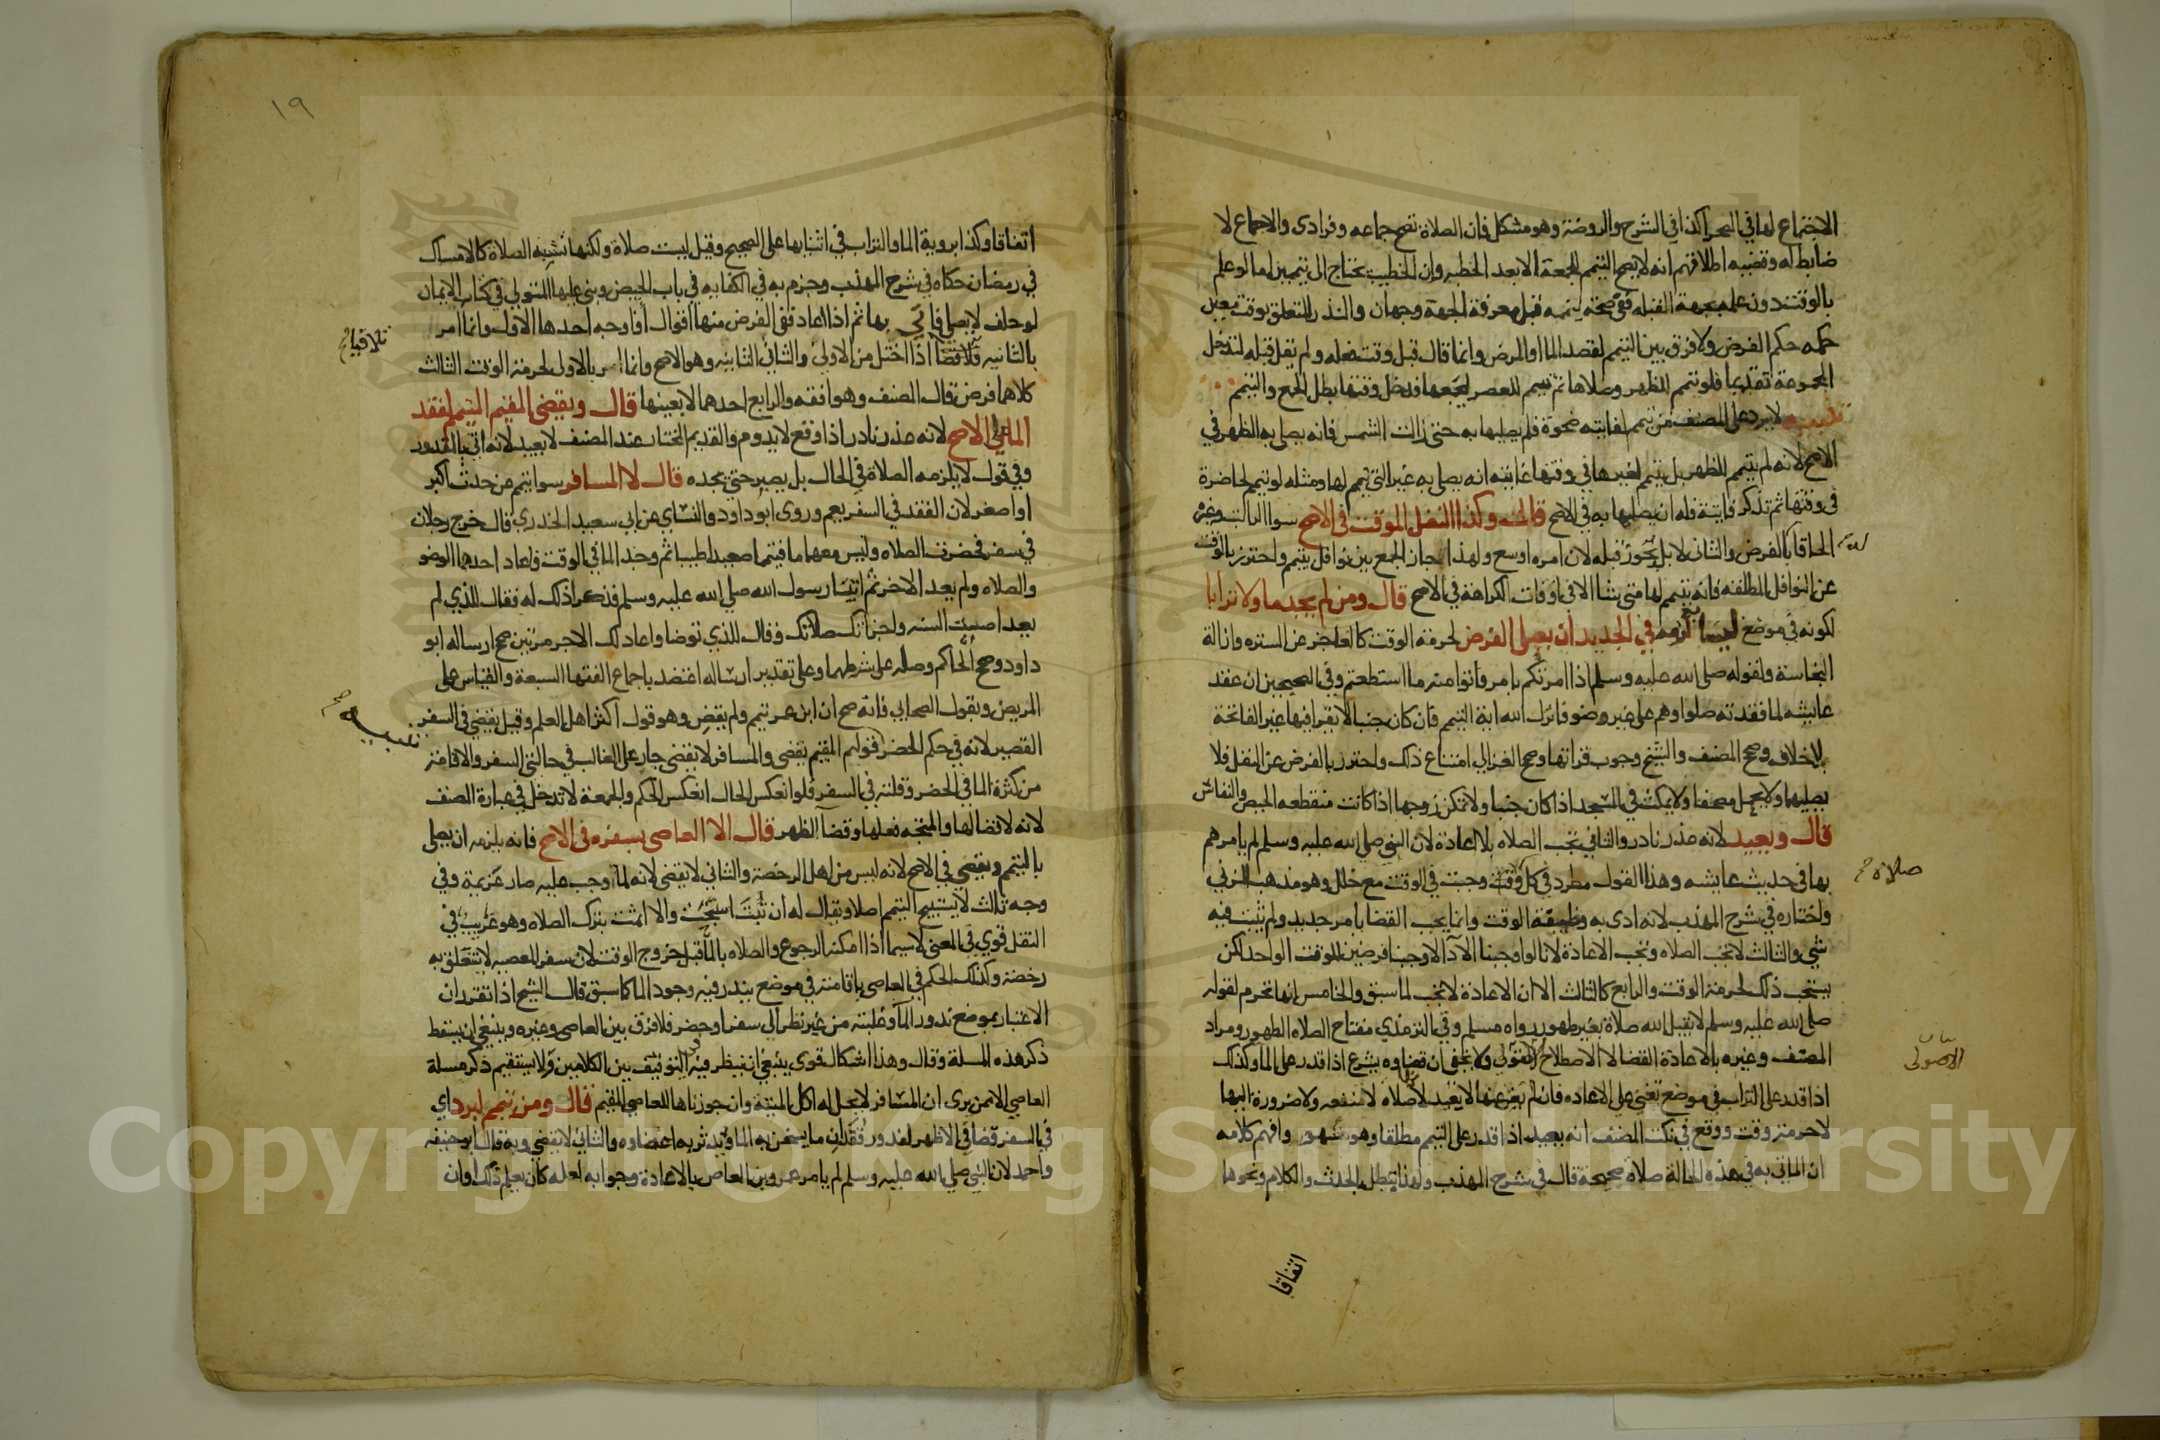 الاجتماع لها في الصحرا كذا في الشرح والروضة وهو مشكل فان الصلاة تصح جماعه وفرادى والاجماع لا
ضابط له وقضيه اطلاقهم انه لا يصح التيمم للجمعة الا بعد الخطبه وان الخطيب يحتاج الى تيممين لها لو علم
بالوقت دون علمه بجهة القبله ففي صحة تيممه قبل معرفة الجهة وجهان والنذر المتعلق بوقت معين
حكمه حكم الفرض ولا فرق بين التيمم لفقد الما او المرض وانما قال قبل وقت فعله ولم يقل قبله لتدخل
المجموعة تقديما فلو تيمم للظهر وصلاها ثم تيمم للعصر ليجمعها فدخل وقتها بطل الجمع والتيمم
تنبيه لا يرد على المصنف من تيمم لفايته ضحوة فلم يصلها به حتى زالت الشمس فانه يصلي به الظهر في
الاصح لانه لم يتيمم للظهر بل تيمم لغيرها في وقتها غايته انه يصلي به غير التي تيمم لها ومثله لو تيمم لحاضرة
في وقتها ثم تذكر فايتة فله ان يصليها به في الاصح قال وكذا النفل الموقت في الاصح سوا الراتب وغيره
الحاقا بالفرض والثاني لا بل يجوز قبله لان امره اوسع ولهذا جاز الجمع بين نوافل بتيمم واحترز بالوقت
عن النوافل المطلقه فانه يتيمم لها متى شا الا في اوقات الكراهة في الاصح قال ومن لم يجد ما ولا ترابا
لكونه في موضع ليسا فيه لزمه في الجديد ان يصلي الفرض لحرمة الوقت كالعاجز عن الستره وازالة
النجاسة ولقوله صلى الله عليه وسلم اذا امرتكم بامر فأتوا منه ما استطعتم وفي الصحيحين ان عقد
عايشه لما فقدته صلوا وهم على غير وضو فانزل الله اية التيمم فان كان جنبا لا يقرا فيها غير الفاتحة
بلا خلاف وصحح المصنف والشيخ وجوب قراتها وصحح الغزالي امتناع ذلك واحترز بالفرض عن النفل فلا
يصليها ولا يحمل مصحفا ولا يمكث في المسجد اذا كان جنبا ولا تمكن زوجها اذا كانت منقطعه الحيض والنفاس
قال ويعيد لانه عذر نادر والثاني تجب الصلاه بلا اعادة لان النبي صلى الله عليه وسلم لم يامرهم
بها في حديث عايشه وهذا القول مطرد في كل وقت وجبت في الوقت مع خلل وهو مذهب المزني
صلاة صح
واختاره في شرح المهذب لانه ادى به وظيفة الوقت وانما يجب القضا بامر جديد ولم يثبت فيه
شي والثالث لا تجب الصلاه وتجب الاعادة لانا لو اوجبنا الادا لاوجبنا فرضين للوقت الواحد لكن
يستحب ذلك لحرمة الوقت والرابع كالثالث الا ان الاعادة لا تجب لما سبق والخامس انها تحرم لقوله
صلى الله عليه وسلم لا يقبل الله صلاة بغير طهور رواه مسلم وفي الترمذي مفتاح الصلاه الطهور ومراد
المصنف وغيره بالاعادة القضا لا الاصطلاح الاصولي ولا يخفى ان قضاوه يشرع اذا قدر على الما وكذلك
الاصولي
اذا قدر على التراب في موضع تغني على الاعاده فان لم يغن عنها لا يعيد لا صلاة لا منفعه ولا ضرورة اليها
لا حرمة وقت ووقع في نكت المصنف انه يعيد اذا قدر على التيمم مطلقا وهو سهو وافهم كلامه
ان الماتي به في هذه الحالة صلاة صحيحة قال في شرح المهذب ولهذا يبطل بالحدث والكلام ونحوها
اتفاقا
١٩
اتفاقا وكذا بروية الما والتراب في اثنايها على الصحيح وقيل ليست صلاة ولكنها تشبه الصلاة كالامساك
في رمضان حكاه في شرح المهذب وجزم به في الكفايه في باب الحيض وبنى عليها المتولي في كتاب الايمان
لو حلف لا يصلي فاتي بها ثم اذا اعاد ففي الفرض منها اقوال او اوجه احدها الاول وانما امر
بالثانيه تلافيا لما اختل من الاولى والثاني الثانيه وهو الاصح وانما امر بالاول لحرمة الوقت الثالث
تلافيا صح
كلاهما فرض قال المصنف وهو افقه والرابع احدهما لا بعينها قال ويقضي المقيم المتيمم لفقد
الما على الاصح لانه عذر نادر اذا وقع لا يدوم والقديم المختار عند المصنف لا يعيد لانه اتى بالمقدور
وفي قول لا يلزمه الصلاة في الحال بل يصبر حتى يجده قال لا المسافر سوا تيمم عن حدث اكبر
او اصغر لان الفقد في السفر يعم وروى ابو داود والنساي عن ابي سعيد الخدري قال خرج رجلان
في سفر فحضرت الصلاه وليس معهما ما فتيمما صعيدا طيبا ثم وجدا الما في الوقت فاعاد احدهما الوضو
والصلاه ولم يعد الاخر ثم اتيا رسول الله صلى الله عليه وسلم فذكرا ذلك له فقال للذي لم
يعد اصبت السنه واجزاتك صلاتك وقال للذي توضا واعاد لك الاجر مرتين صحح ارساله ابو
داود وصحح الحاكم وصله على شرطهما وعلى تقدير ارساله اعتضد باجماع الفقها السبعة والقياس على
المريض وبقول الصحابي فانه صح ان ابن عمر تيمم ولم يقض وهو قول اكثر اهل العلم وقيل يقضي في السفر
القصير لانه في حكم الحضر وقولهم المقيم يقضي والمسافر لا يقضي جار على الغالب في حالتي السفر والاقامة
تنبيه صح
من كثرة الما في الحضر وقلته في السفر فلو انعكس الحال انعكس الحكم والجمعة لا تدخل في عبارة المصنف
لانه لا قضا لها والمتجه فعلها وقضا الظهر قال الا العاصي بسفره في الاصح فانه يلزمه ان يصلي
بالتيمم ويقضي في الاصح لانه ليس من اهل الرخصة والثاني لا يقضي لانه لما وجب عليه صار عزيمة وفي
وجه ثالث لا يستبيح التيمم اصلا ويقال له ان تبت استبحت والا اثمت بترك الصلاه وهو غريب في
النقل قوي في المعنى لاسيما اذا امكنه الرجوع والصلاه بالما قبل خروج الوقت لان سفر المعصيه لا تتعلق به
رخصة وكذلك الحكم في العاصي باقامته في موضع يندر فيه وجود الما كما سبق قال الشيخ اذا تقرر ان
الاعتبار بموضع ندور الما وغلبته من غير نظر الى سفر او حضر فلا فرق بين العاصي وغيره وينبغي ان يسقط
ذكر هذه المسلة وقال وهذا اشكال قوي ينبغي ان ينظر فيه التوفيق بين الكلامين ولا يستقيم ذكر مسلة
العاصي الا ممن يرى ان المسافر لا يحل له اكل الميتة وان جوزناها للعاصي المقيم قال ومن تيمم لبرد اي
في السفر قضا في الاظهر لندور فقدان ما يسخن به الما او يدثر به اعضاوه والثاني لا يقضي وبه قال ابو حنيفه
واحمد لان النبي صلى الله عليه وسلم لم يامر عمرو بن العاص بالاعادة وجوابه لعله كان يعلم ذلك وان
Copyright © King Saud University